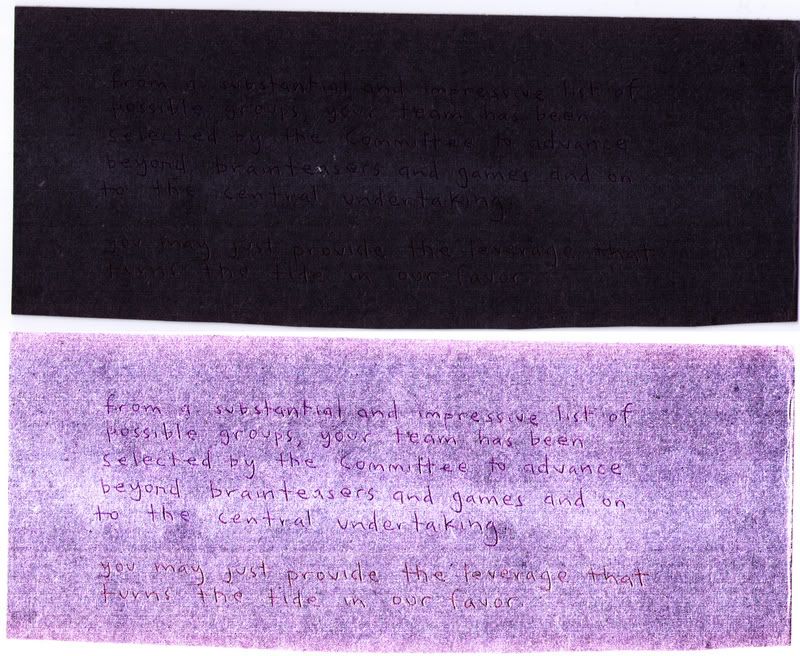 from a substantial and impressive list of
possible groups, your team has been
selected by the Committee to advance
beyond brainteasers and games and on
to the central undertaking.
you may just provide the leverage that
turns the tide in our favor.
from a substantial and impressive list of
possible groups, your team has been
selected by the Committee to advance
beyond brainteasers and games and on
to the central undertaking.
you may just provide the leverage that
turns the tide in our favor.